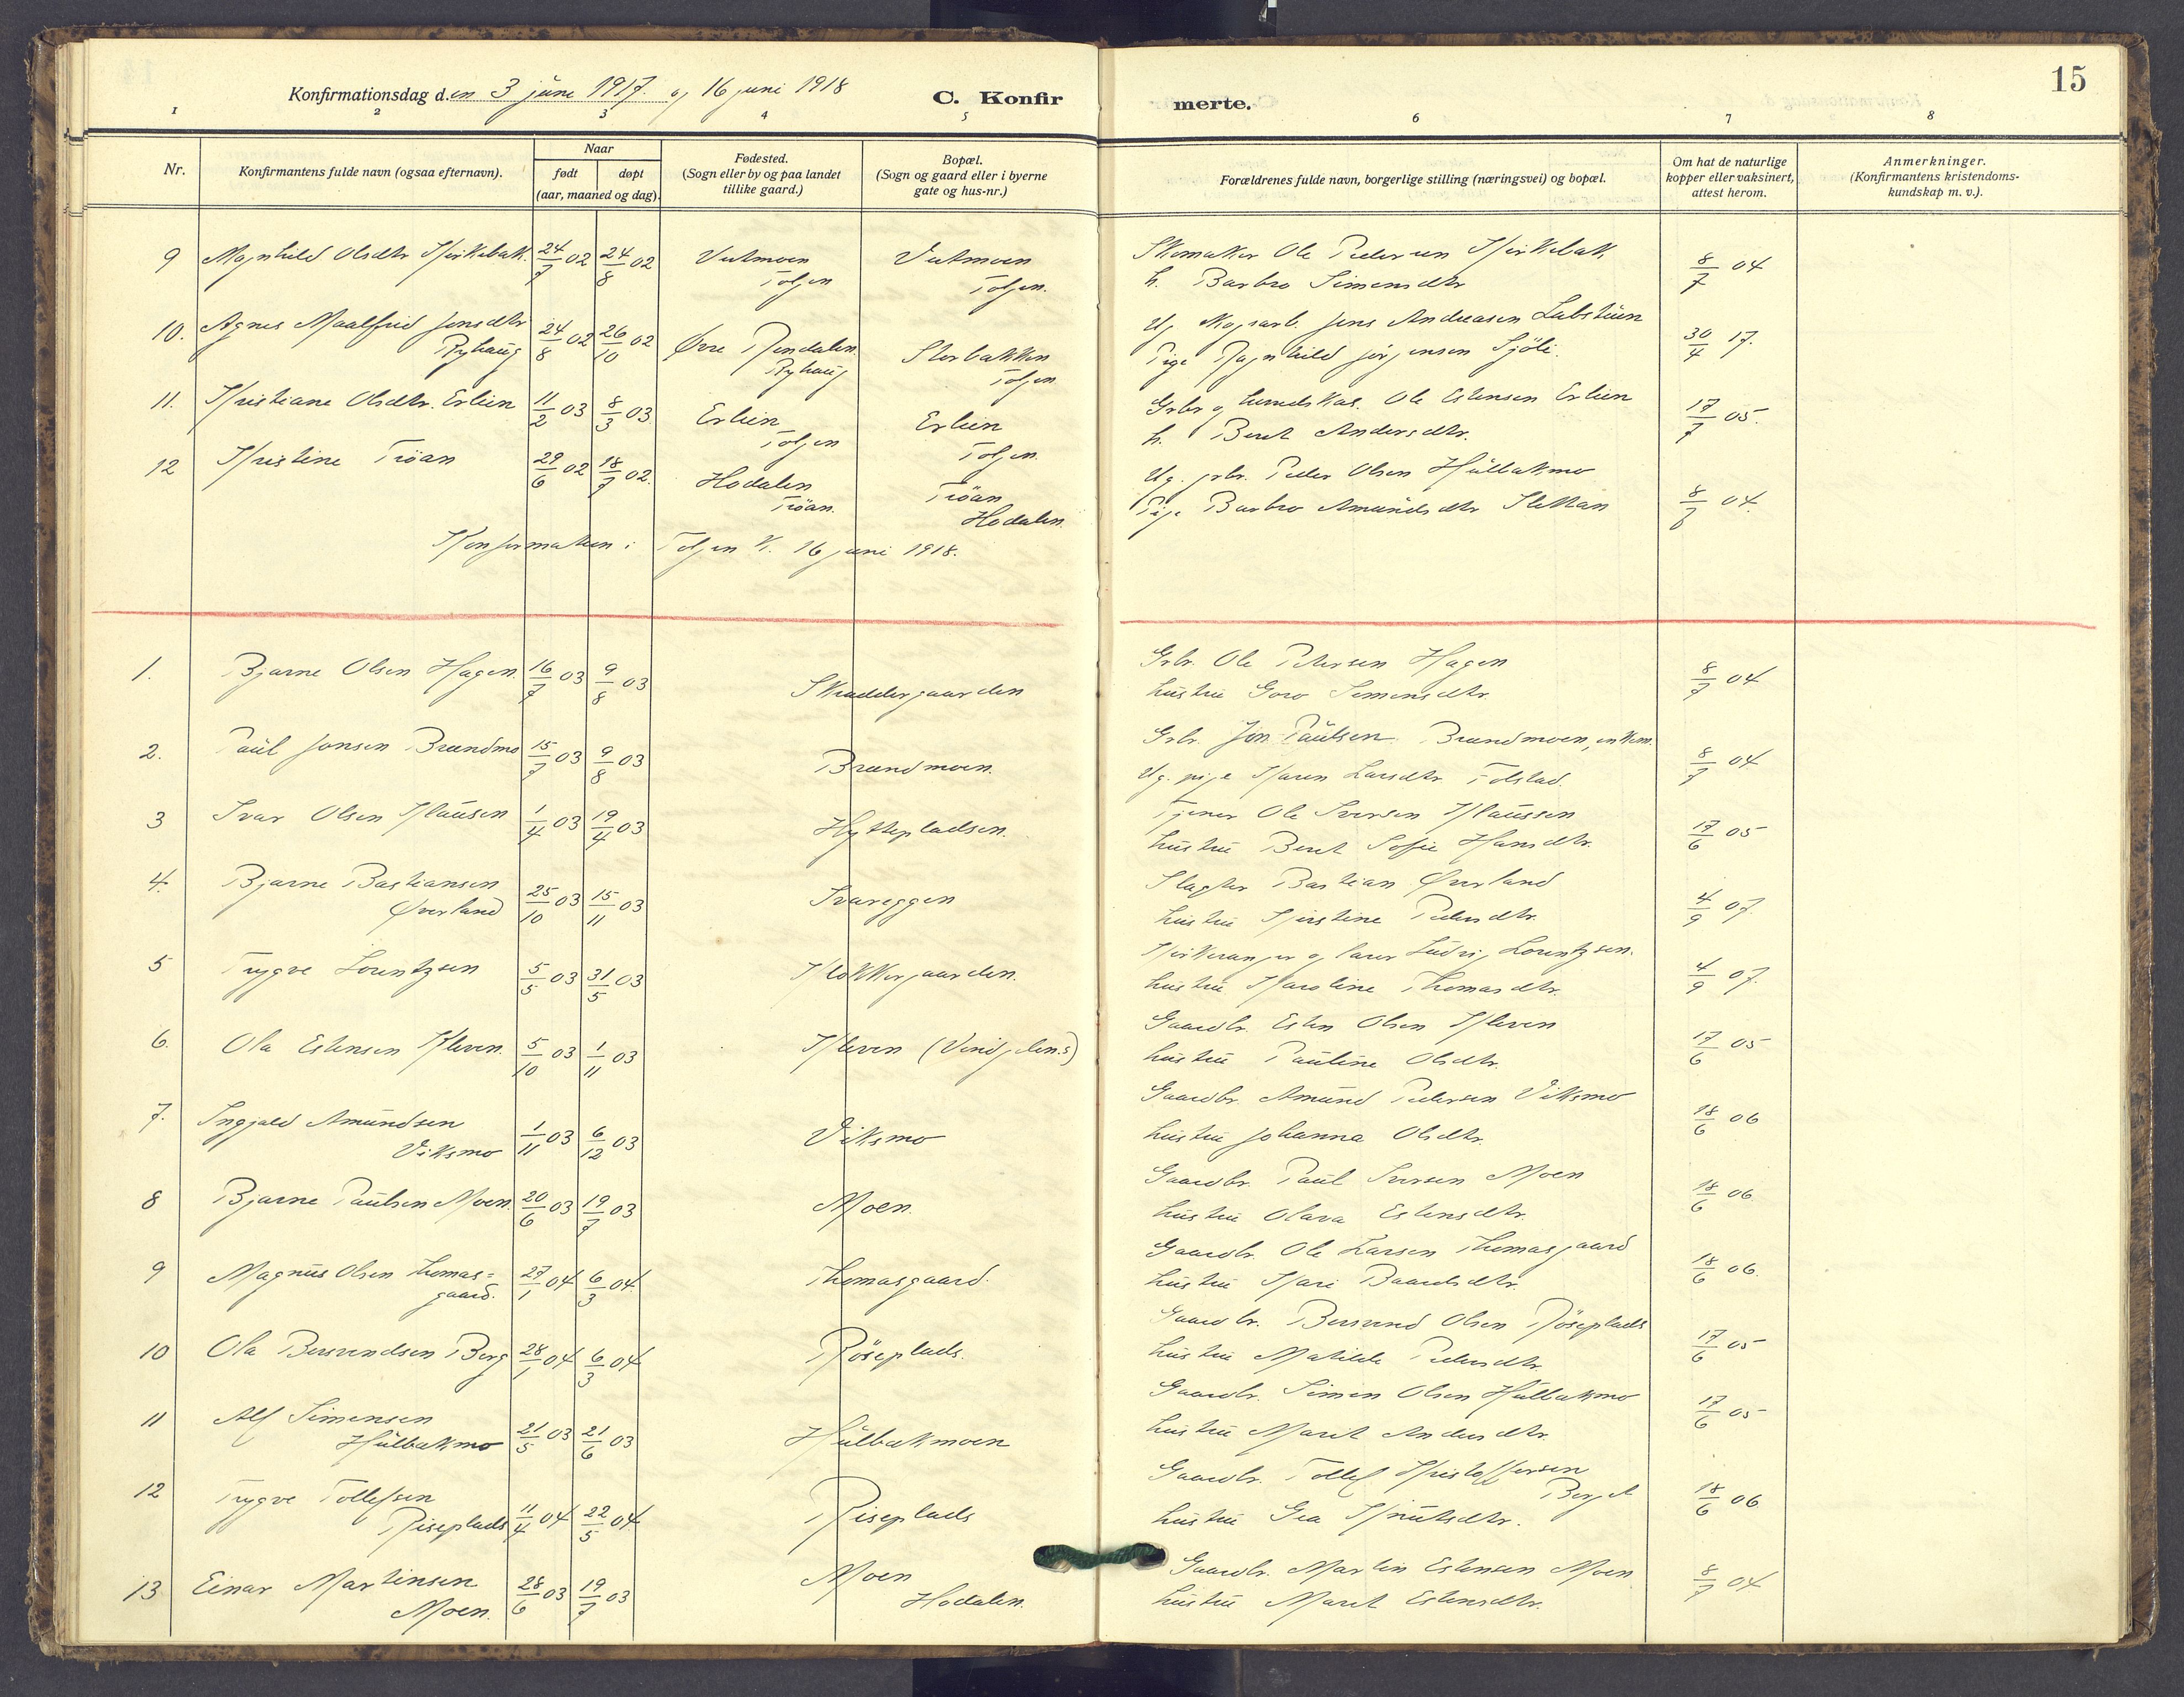 15
Konfirmationsdag d. en 3 june 1917. og 16 juni 1918
C. Konfirmerte.
1 2 3 4 5 6 7 8
Nr.
Konfirmantens fulde navn (ogsaa efternavn).
Naar
født døpt
(aar, maaned og dag).
Fødested.
(Sogn eller by og paa landet
tillike gaard.)
Bopæl.
(Sogn og gaard eller i byerne
gate og hus-nr.)
Forældrenes fulde navn, borgerlige stilling (næringsvei) og bopæl.
Om hat de naturlige
kopper eller vaksinert,
attest herom.
Anmerkninger.
(Konfirmantens kristendoms-
kundskap m. v.).
9 Magnhild Olsdtr Kirkebak. 24/7 02 24/8 02 Vutmoen Vutmoen Skomaker Ole Pedersen Kirkebak 8/7 04
Tolgen Tolgen. h. Barbro Simensdtr
10. Agnes Maalfrid Jensdtr 24/8 02 26/10 02 Øvre Rendalen Storbakken Ug. Jens Andreasen Labstuen 30/4 17.
Ryhaug Ryhaug Tolgen Pige Ragnhild Jörgensen Sjöli.
11. Kristiane Olsdtr. Erlien 11/2 03 8/3 03. Erlien Erlien Grbr og Ole Estensen Erlien 17/7 05.
Tolgen Tolgen h. Berit Andersdtr.
12 Kristine Tröan 29/6 02 18/7 02. Hodalen Tröan Ug. grbr. Peder Olsen Hulbakmo 8/7 04.
Tröan. Hodalen. Pige Barbro Amundsdtr Slettan
Konfirmation i Tolgen K. 16 juni 1918.
1. Bjarne Olsen Hagen. 16/7 03 9/8 03 Skreddergaarden Grbr. Ole Petersen Hagen 8/7 04
hustru Goro Simensdtr.
2. Paul Jonsen Brendmo 15/7 03 9/8 03 Brendmoen. Grbr. Jon Paulsen Brendmoen, enkem. 8/7 04
Ug. pige Karen Larsdtr Tolstad.
3 Ivar Olsen Klausen 1/4 03 19/4 03 Hyttepladsen. Tjener Ole Iversen Klaussen 17/6 05
hustru Berit Sofie Hansdtr.
4. Bjarne Bastiansen 25/10 03 15/11 03 Ivareggen Slagter Bastian Øverland 4/9 07
Øverland hustru Kjerstine Pedersdtr.
5 Trygve Lorentzsen 5/5 03 31/5 03 Klokkergaarden. Kirkesanger og lærer Ludvig Lorentzsen. 4/9 07.
hustru Karoline Thomasdtr.
6. Ola Estensen Kleven. 5/10 03 1/11 03 Kleven (Vingelens) Gaardbr. Esten Olsen Kleven 17/6 05
hustru Pauline Olsdtr.
7. Ingjald Amundsen 1/11 03 6/12 03 Viksmo Gaardbr. Amund Pedersen Viksmo 18/6 06
Viksmo hustru Johanna Olsdtr.
8 Bjarne Paulsen Moen. 20/6 03 19/7 03 Moen. Gaardbr. Paul Iversen Moen 18/6 06
hustru Olava Estensdtr.
9 Magnus Olsen Thomas= 27/1 04 6/3 04. Thomasgaard. Gaardbr. Ole Larsen Thomasgaard 18/6 06.
gaard. hustru Kari Baardsdtr.
10 Ola Bersvendsen Berg 28/1 04 6/3 04 Röseplads. Gaardbr. Bersvend Olsen Röseplads 17/6 05
hustru Matilde Pedersdtr.
11 Alf Simensen 21/5 03 21/6 03 Hulbakmoen Gaardbr. Simen Olsen Hulbakmo 17/6 05
Hulbakmo hustru Marit Andersdtr.
12 Trygve Tollefsen 11/4 04 22/5 04 Riseplads Gaardbr. Tollef Kristoffersen 18/6 06
Riseplads Berget
hustru Gea Knutsdtr.
13 Einar Martinsen 28/6 03 19/7 03 Moen Gaardbr. Martin Estensen Moen 8/7 04
Moen. Hodalen. hustru Marit Estensdtr.